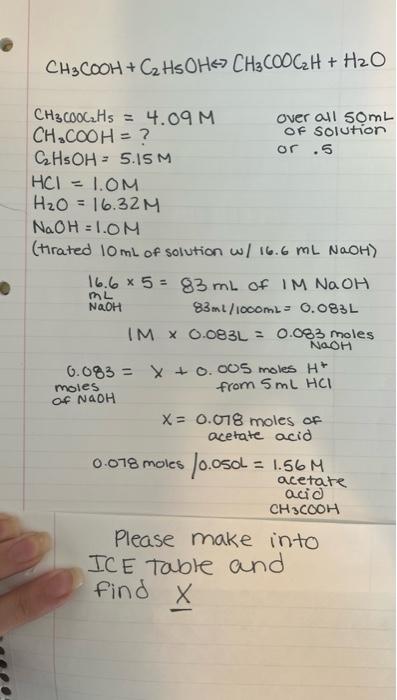 CH3COOH + C2H5OH⇔ CH3COOC2H + H2O
CH3COOC2H5 = 4.09 M
over all 50mL
CH3COOH = ?
of solution
C2H5OH = 5.15 M
or .5
HCl = 1.0M
H2O = 16.32M
NaOH = 1.0M
(tirated 10mL of solution w/ 16.6 mL NaOH)
16.6 x 5 = 83 mL of 1M NaOH
mL
NaOH
83ml/1000mL = 0.083L
1M x 0.083L = 0.083 moles
NaOH
0.083 = x + 0.005 moles H+
moles
of NaOH
from 5mL HCl
X = 0.078 moles of
acetate acid
0.078 moles /0.050L = 1.56 M
acetate
acid
CH3COOH
Please make into
ICE Table and
find X